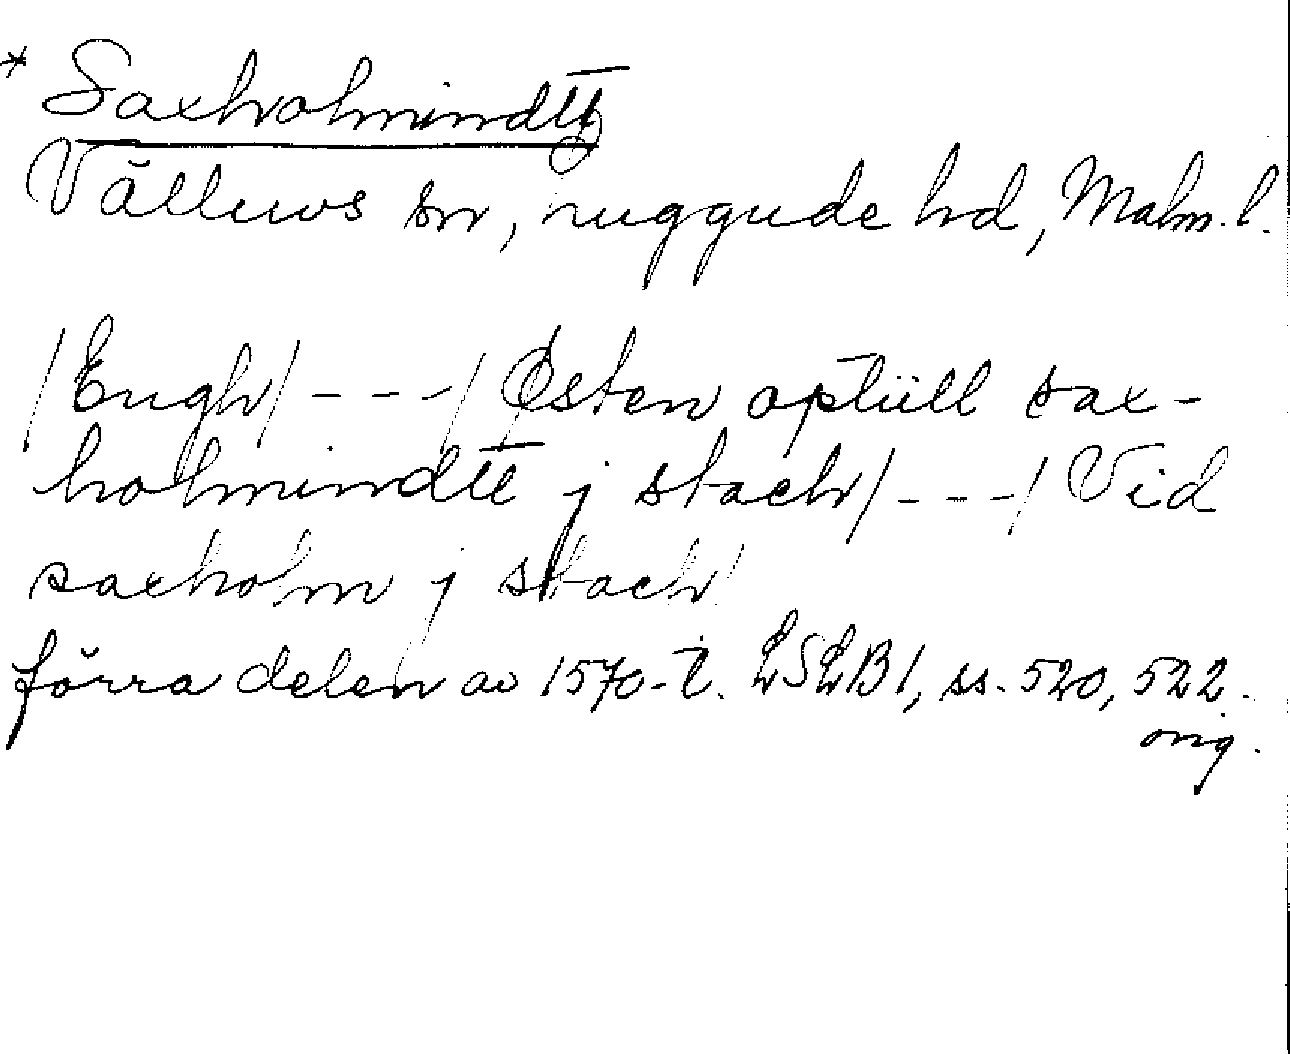 * Saxholmindtt
Välluvs sn, Luggude hd, Malm. l.
/Engh/ - - - / Østen aptiill sax-
holmindtt j stach/ - - - / Vid
saxholm j stach/
förra delen av 1570-t. LSLB1, ss. 520, 522.
orig.